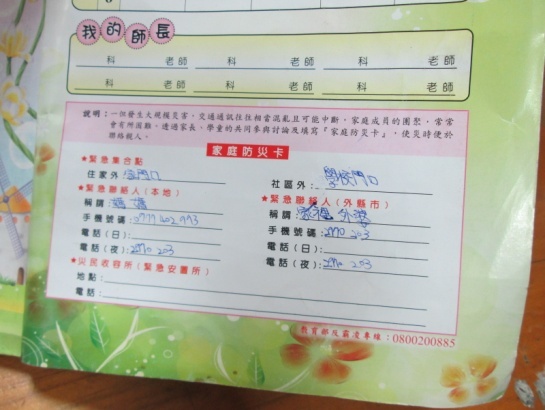 我的師長
科 老師 科 老師 科 老師
科 老師 科 老師 科 老師
說明：一個發生大規模災害，交通通訊往往相當混亂且可能中斷，家庭成員的團聚，常常
會有所困難，透過家長、學童的共同參與討論及填寫『家庭防災卡』，使災時便於
聯絡親人。
家庭防災卡
★緊急集合點
住家外：家門口
社區外：學校門口
★緊急聯絡人（本地）
稱謂：媽媽
手機號碼：
電話（日）：
電話（夜）：
★緊急聯絡人（外縣市）
稱謂：外婆
手機號碼：
電話（日）：
電話（夜）：
★災民收容所（緊急安置所）
地點：
電話：
教育部反霸凌專線：0800200885